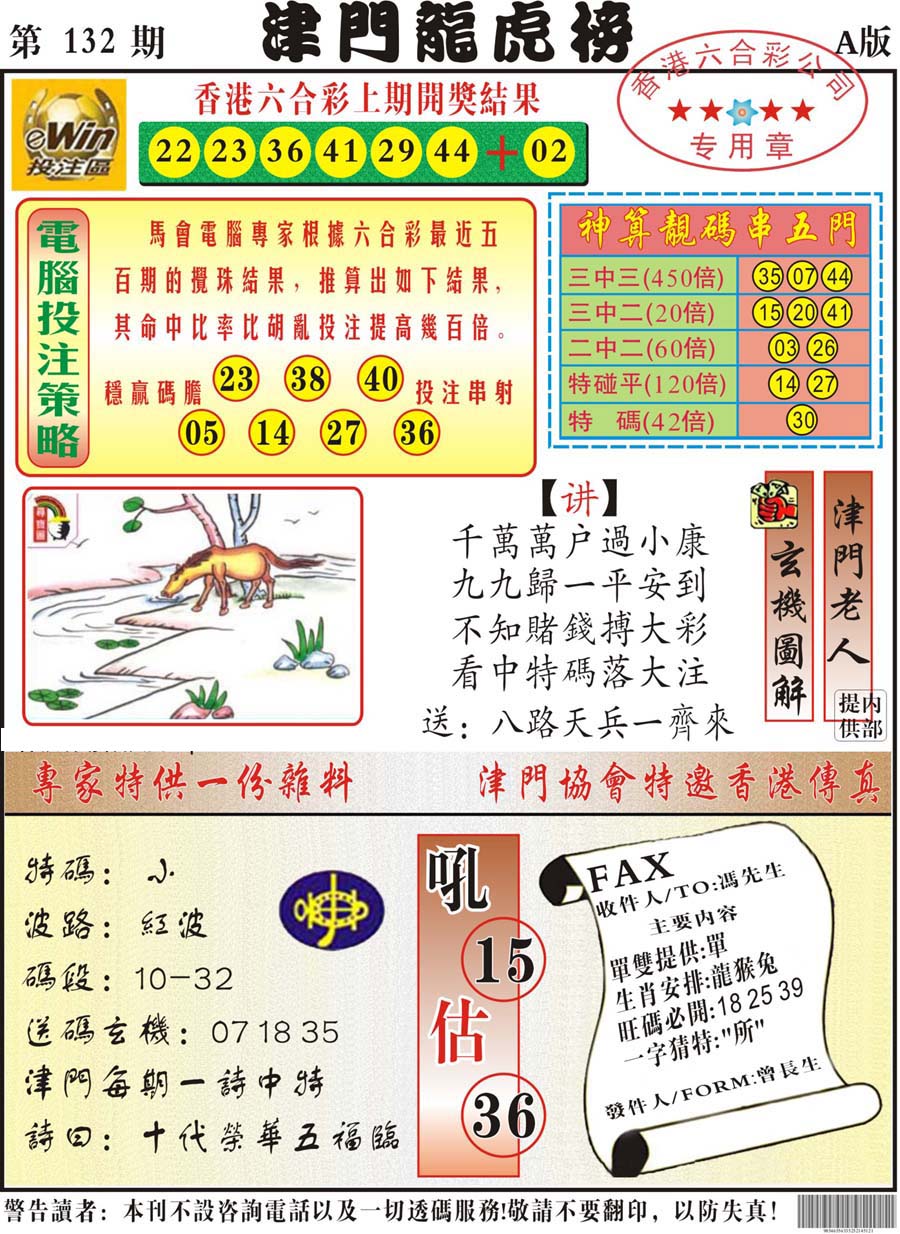 第 132 期
津門龍虎榜
A版
香港六合彩公司
专用章
eWin
投注區
香港六合彩上期開獎結果
22 23 36 41 29 44 + 02
電腦投注策略
馬會電腦專家根據六合彩最近五
百期的攪珠結果，推算出如下結果，
其命中比率比胡亂投注提高幾百倍。
穩贏碼膽 23 38 40 投注串射
05 14 27 36
神算靚碼串五門
三中三(450倍) 35 07 44
三中二(20倍) 15 20 41
二中二(60倍) 03 26
特碰平(120倍) 14 27
特 碼(42倍) 30
尋寶圖
【讲】
千萬萬户過小康
九九歸一平安到
不知賭錢搏大彩
看中特碼落大注
送：八路天兵一齊來
玄機圖解
津門老人
内部提供
專家特供一份雜料
津門協會特邀香港傳真
特碼：小
波路：紅波
碼段：10-32
送碼玄機：07 18 35
津門每期一詩中特
詩曰：十代榮華五福臨
吼
15
估
36
FAX
收件人/TO:馮先生
主要内容
單雙提供:單
生肖安排:龍猴兔
旺碼必開:18 25 39
一字猜特:"所"
發件人/FORM:曾長生
警告讀者：本刊不設咨詢電話以及一切透碼服務!敬請不要翻印，以防失真！